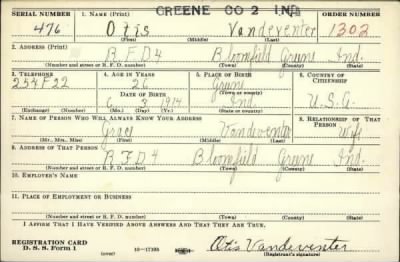 GREENE CO 2 IND
SERIAL NUMBER 1. NAME (Print) ORDER NUMBER
476 Otis Vandeventer 1302
(First) (Middle) (Last)
2. ADDRESS (Print)
R F D 4 Bloomfield Greene Ind.
(Number and street or R. F. D. number) (Town) (County) (State)
3. TELEPHONE 4. AGE IN YEARS 5. PLACE OF BIRTH 6. COUNTRY OF CITIZENSHIP
254F22 26 Greene
DATE OF BIRTH (Town or county)
6 3 1914 Ind. U.S.A.
(Exchange) (Number) (Mo.) (Day) (Yr.) (State or country)
7. NAME OF PERSON WHO WILL ALWAYS KNOW YOUR ADDRESS 8. RELATIONSHIP OF THAT PERSON
Grace Vandeventer Wife
(Mr., Mrs., Miss) (First) (Middle) (Last)
9. ADDRESS OF THAT PERSON
R F D 4 Bloomfield Greene Ind.
(Number and street or R. F. D. number) (Town) (County) (State)
10. EMPLOYER'S NAME
11. PLACE OF EMPLOYMENT OR BUSINESS
(Number and street or R. F. D. number) (Town) (County) (State)
I AFFIRM THAT I HAVE VERIFIED ABOVE ANSWERS AND THAT THEY ARE TRUE.
REGISTRATION CARD
D. S. S. Form 1 16—17105 Otis Vandeventer
(Registrant's signature)